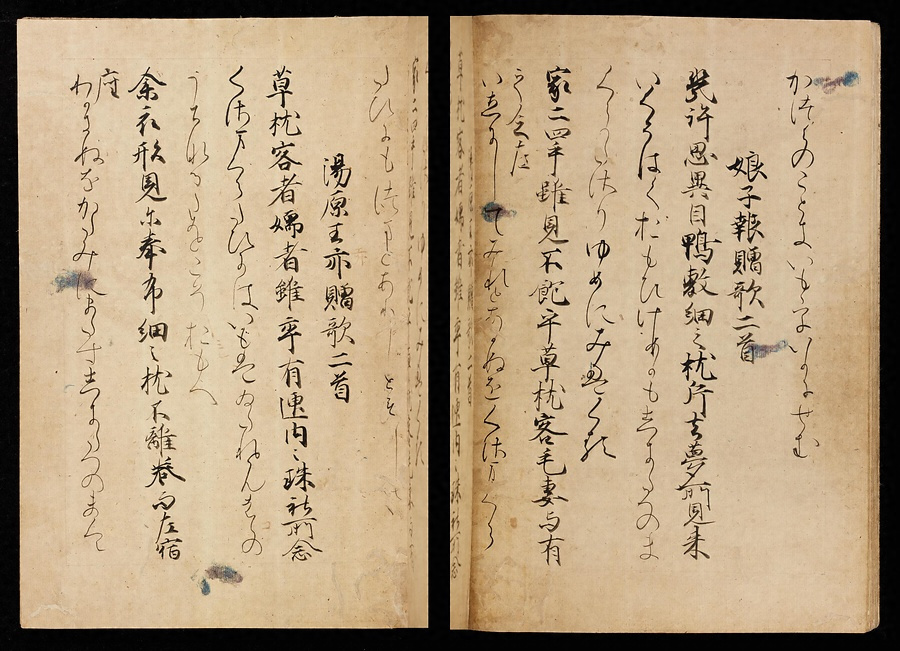 かつらのことき いもをいかにせむ
娘子報贈歌二首
幾許思異目鴨敷細之枕片去夢所見来
いくそはくおもひけめかもしきたへのま
くらかたさりゆめにみえくる
家二四手雖見不飽乎草枕客毛妻与有
之乏左
いへにしてみれとあかぬをくさまくら
たひにもつまとある ともし
湯原王亦贈歌二首
草枕客者嬬者雖率有匣内之珠社所念
くさまくらたひにはいもはゐ
うちのたまとこそおもへ
余衣形見尓奉布細之枕不離巻而左宿
座
わかきぬをかたみにまたすしきたへのまく